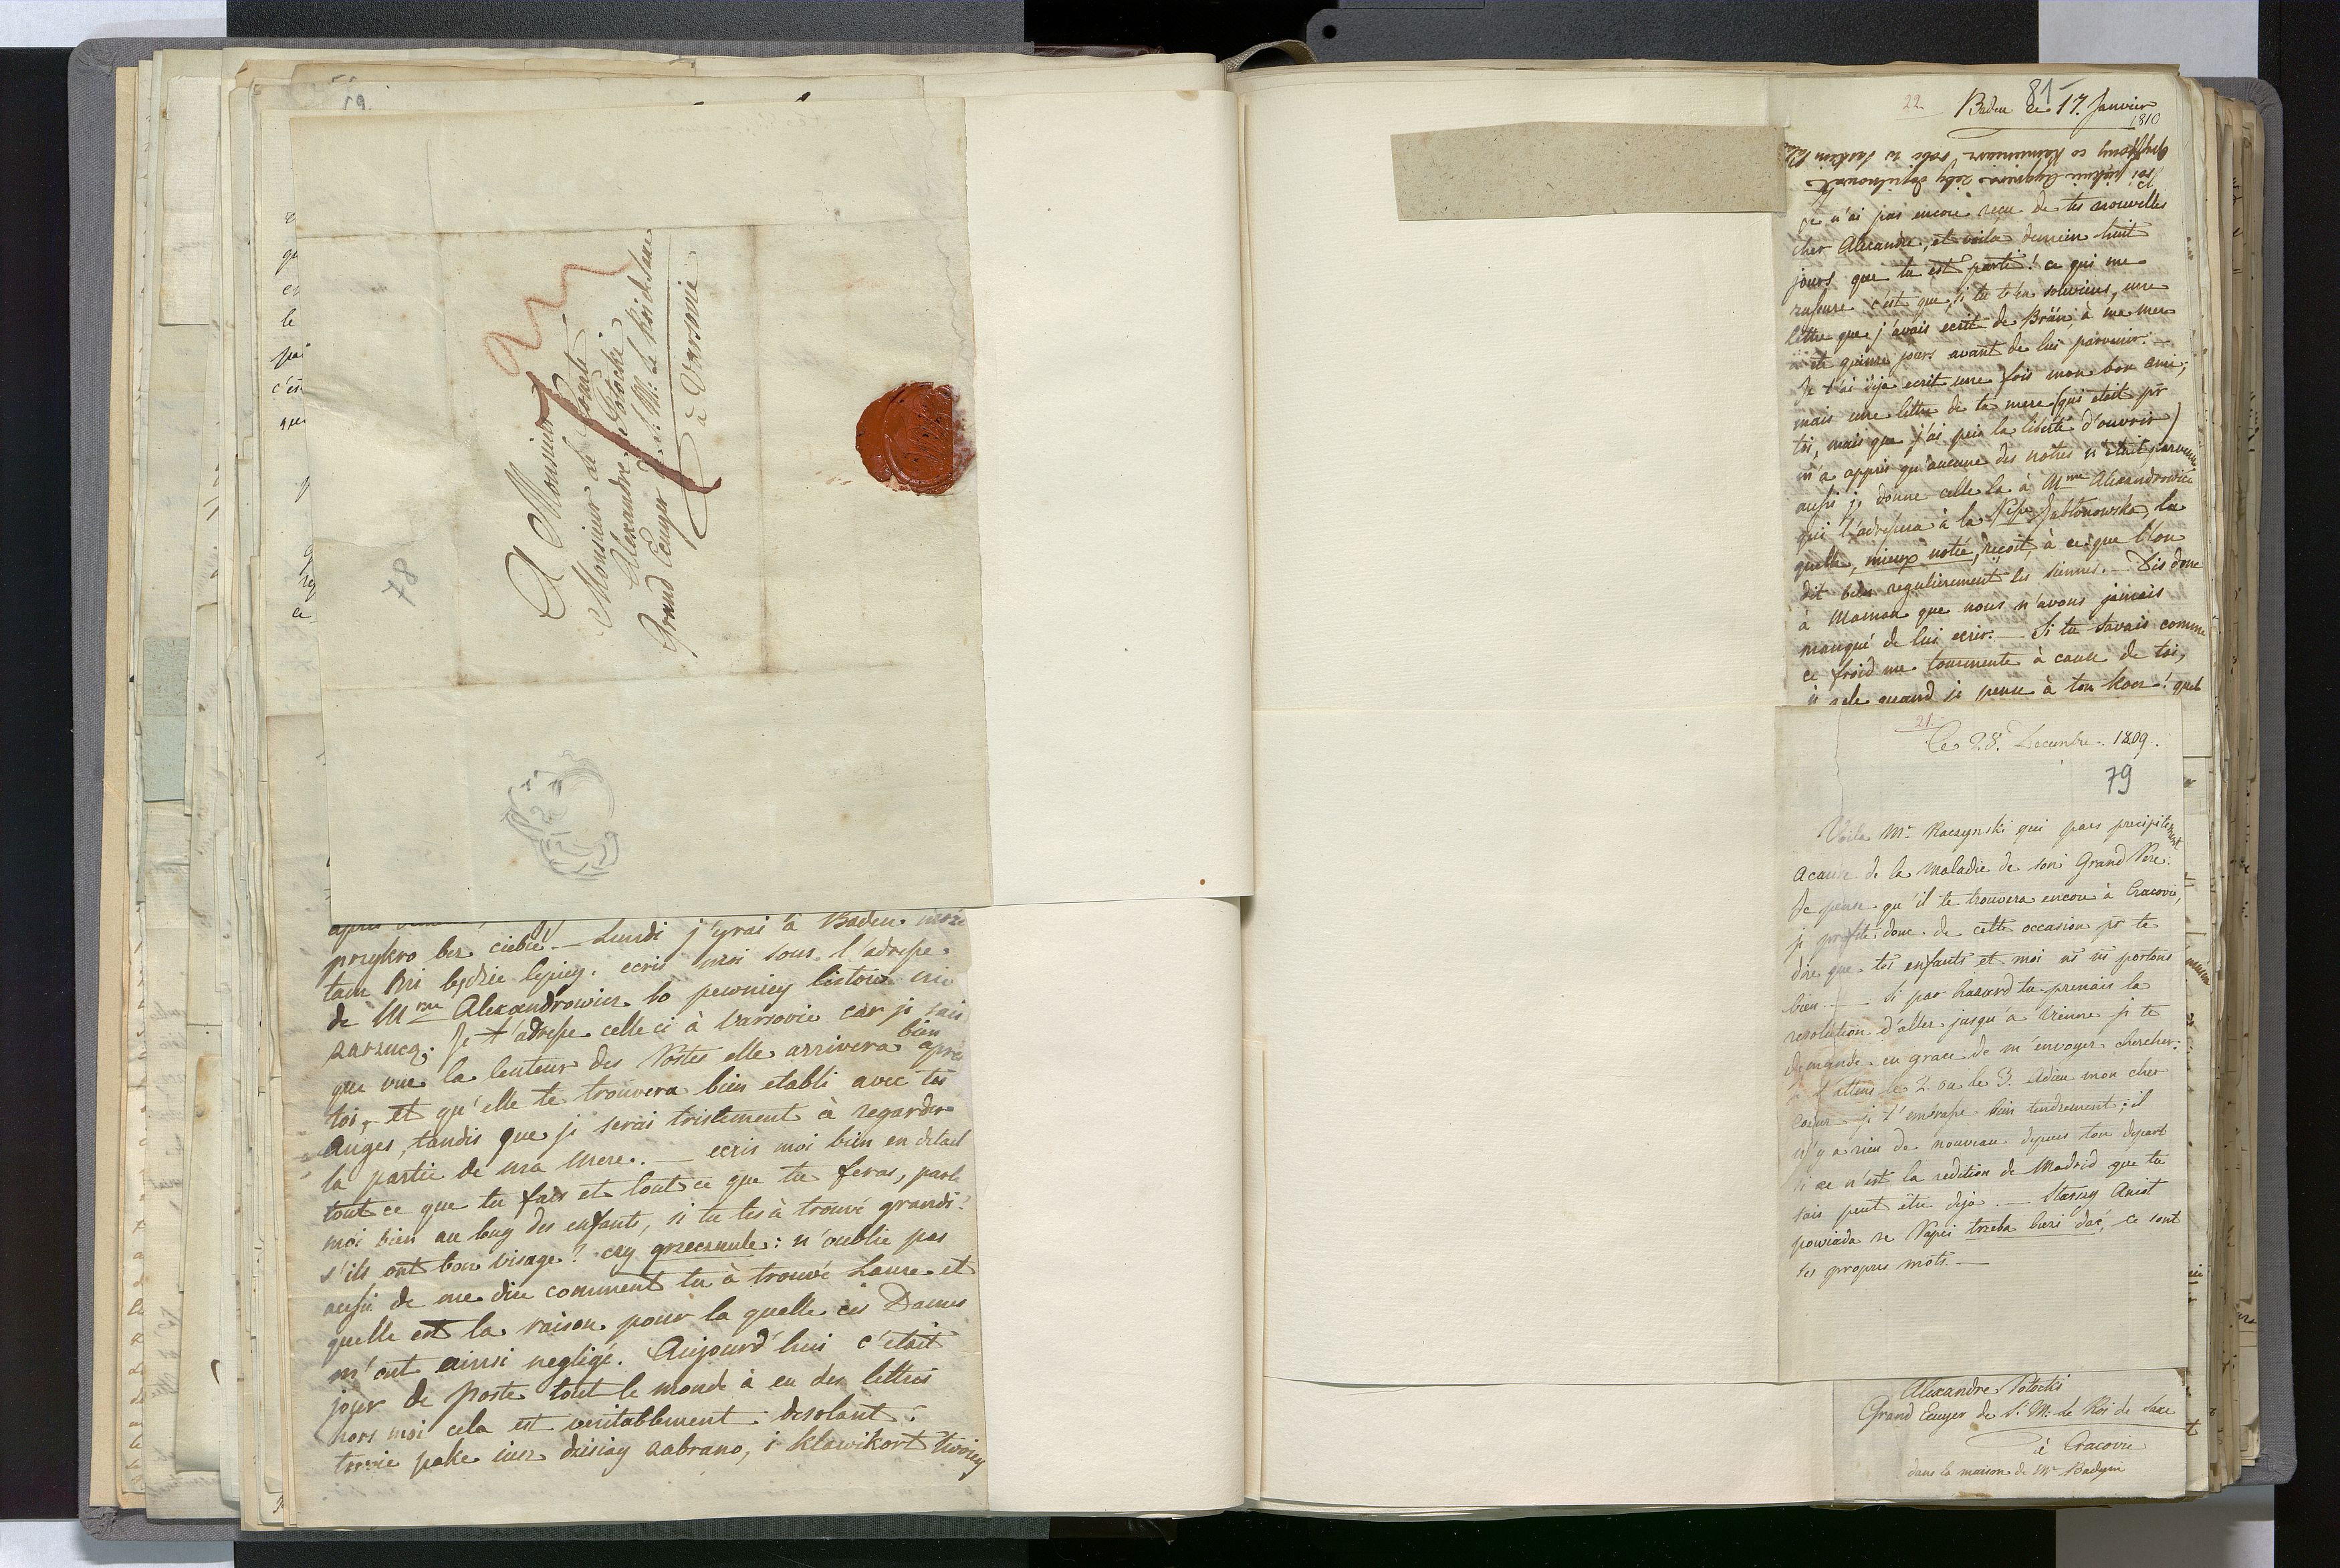 59.
78
A Monsieur
Monsieur le Comte
Alexandre Potocki
Grand Ecuyer de S. M. le Roi de Saxe
à Varsovie
przykro bez ciebie! — Lundi j'yrai à Baden moze
tam mi będzie lepiey. ecris moi sous l'adresse
de Mme Alexandrowicz bo pewniey listow nie
zarzucą. Je t'adresse celle ci à Varsovie car je sais
que vue la lenteur des Postes elle arrivera bien après
toi, et qu'elle te trouvera bien etabli avec tes
Anges, tandis que je serai tristement à regarder
la partie de ma Mere. — ecris moi bien en detail
tout ce que tu fais et tout ce que tu feras, parle
moi bien au long des enfants, si tu les à trouvé grandi?
s'ils ont bon visage? czy grzecznule: n'oublie pas
aussi de me dire comment tu à trouvé Laure et
quelle est la raison pour la quelle ces Dames
m'ont ainsi negligé. Aujourd'hui c'etait
jour de Poste tout le monde à eu des lettres
hors moi cela est veritablement desolant.
twoie pake iusz dzisiay zabrano, i klawikort twoiey
81
22. Baden ce 17. Janvier
1810
Je n'ai pas encore reçu de tes nouvelles
cher Alexandre, et voila demain huit
jours que tu est parti! ce qui me
rassure c'est que si tu t'en souviens, une
lettre que j'avais ecrit de Brün, à ma mere
a eté quinze jours avant de lui parvenir. —
Je t'ai deja ecrit une fois mon bon ami;
mais une lettre de ta mere (qui etoit pr
toi, mais que j'ai pris la liberté d'ouvrir)
m'a appris qu'aucune des notres n'etait parvenue
aussi je donne celle la à Mme Alexandrowicz
qui l'adressera à la Psse Jabłonowska, la
quelle, mieux notée, reçoit, à ce que l'on
dit bien regulierement les siennes. — Dis donc
à Maman que nous n'avons jamais
manqué de lui ecrire. — Si tu savais comme
ce froid me tourmente à cause de toi,
je gele quand je pense à ton kocz! quel
21.
Ce 28. Decembre. 1809.
79
Voila Mr Raczynski qui pars precipitement
a cause de la maladie de son Grand Pere.
Je pense qu'il te trouvera encore à Cracovie,
je profite donc de cette occasion pr te
dire que tes enfants et moi ns ns portons
bien. — Si par hazard tu prenais la
resolution d'aller jusqu'a Vienne je te
demande en grace de m'envoyer chercher.
je t'attens le 2 ou le 3. Adieu mon cher
Coeur je t'embrasse bien tendrement; il
n'y a rien de nouveau depuis ton depart
si ce n'est la redition de Madrid que tu
sais peut être deja. — Starszy Aniot
powiada ze Papci trzeba buzi dać, ce sont
ses propres mots. —
Alexandre Potocki
Grand Ecuyer de S. M. le Roi de Saxe
à Cracovie
dans la maison de Mr